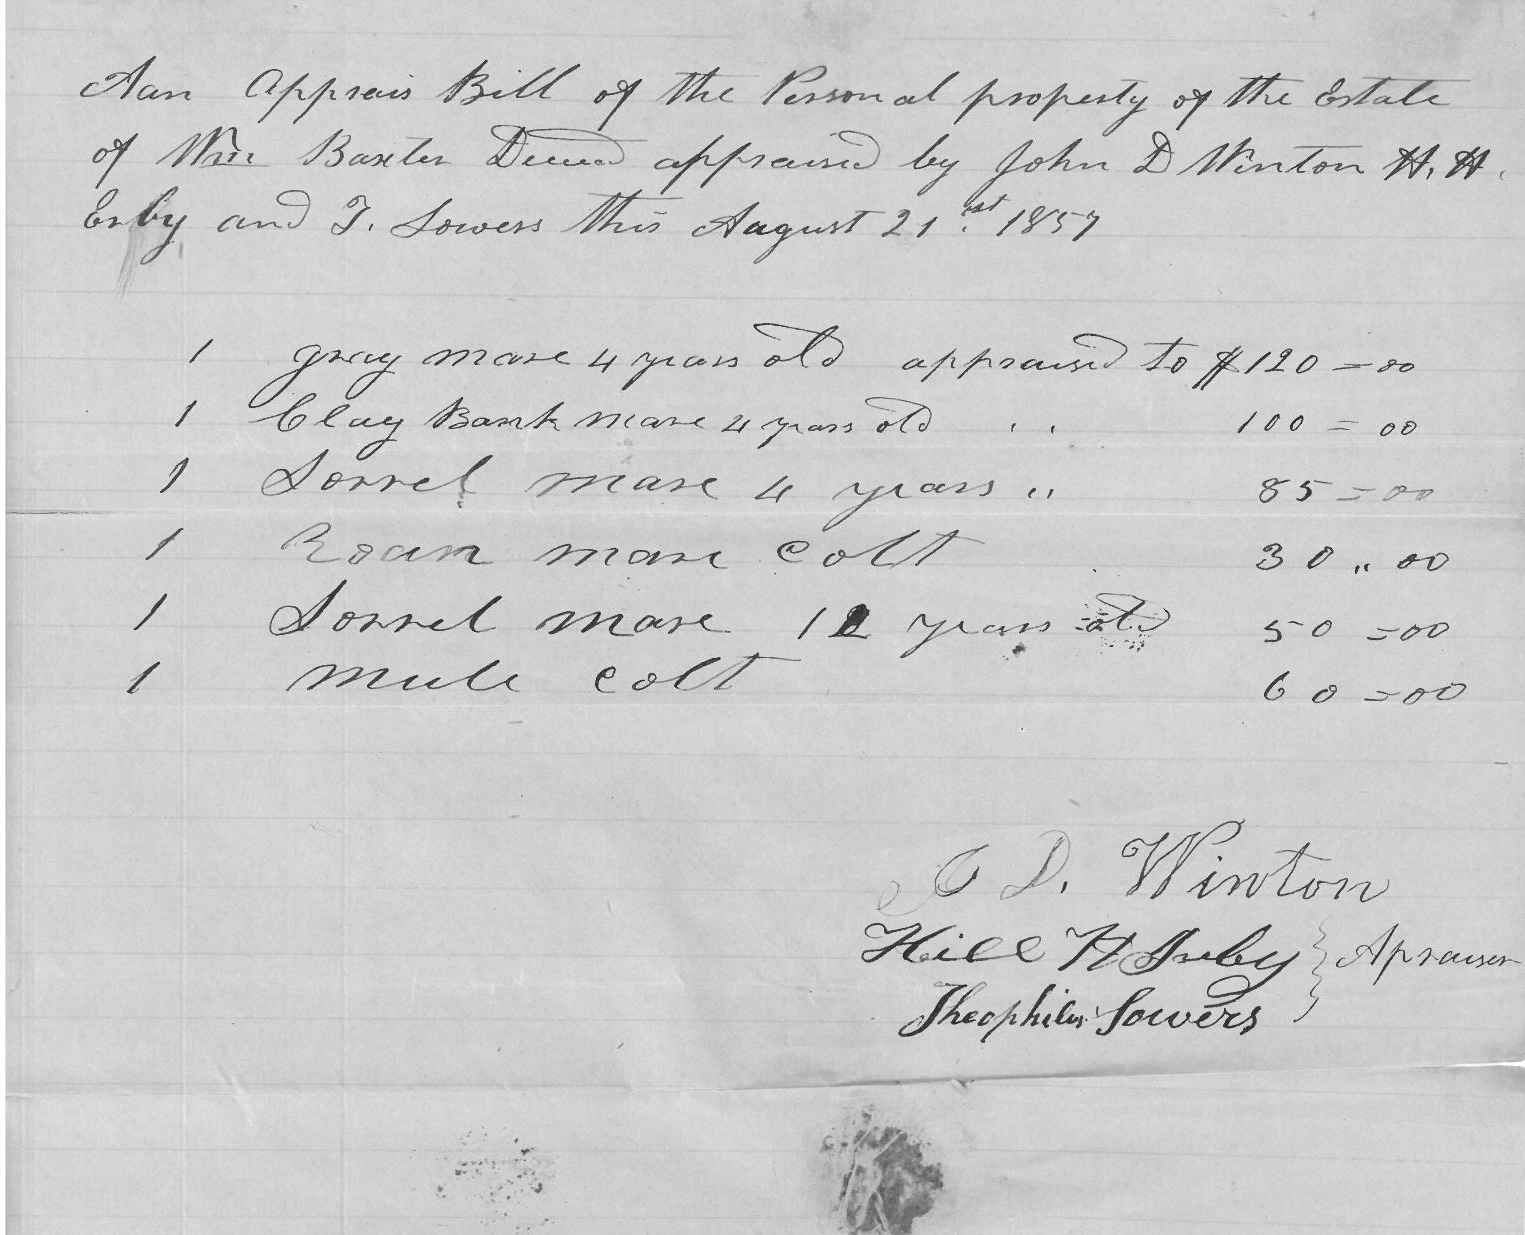 Aan Apprais Bill of the Personal property of the Estate
of Wm Baxter Decead appraised by John D Winton H. H.
Erby and T. Sowers this August 21st 1857
1 gray mare 4 years old appraised to $120=00
1 Clay Bank mare 4 years old " 100=00
1 Sorrel mare 4 years " 85=00
1 Roan mare colt 30 " 00
1 Sorrel mare 12 years old 50=00
1 mule colt 60=00
J D. Winton
Hill H Irby } Apraiser
Theophilus Sowers